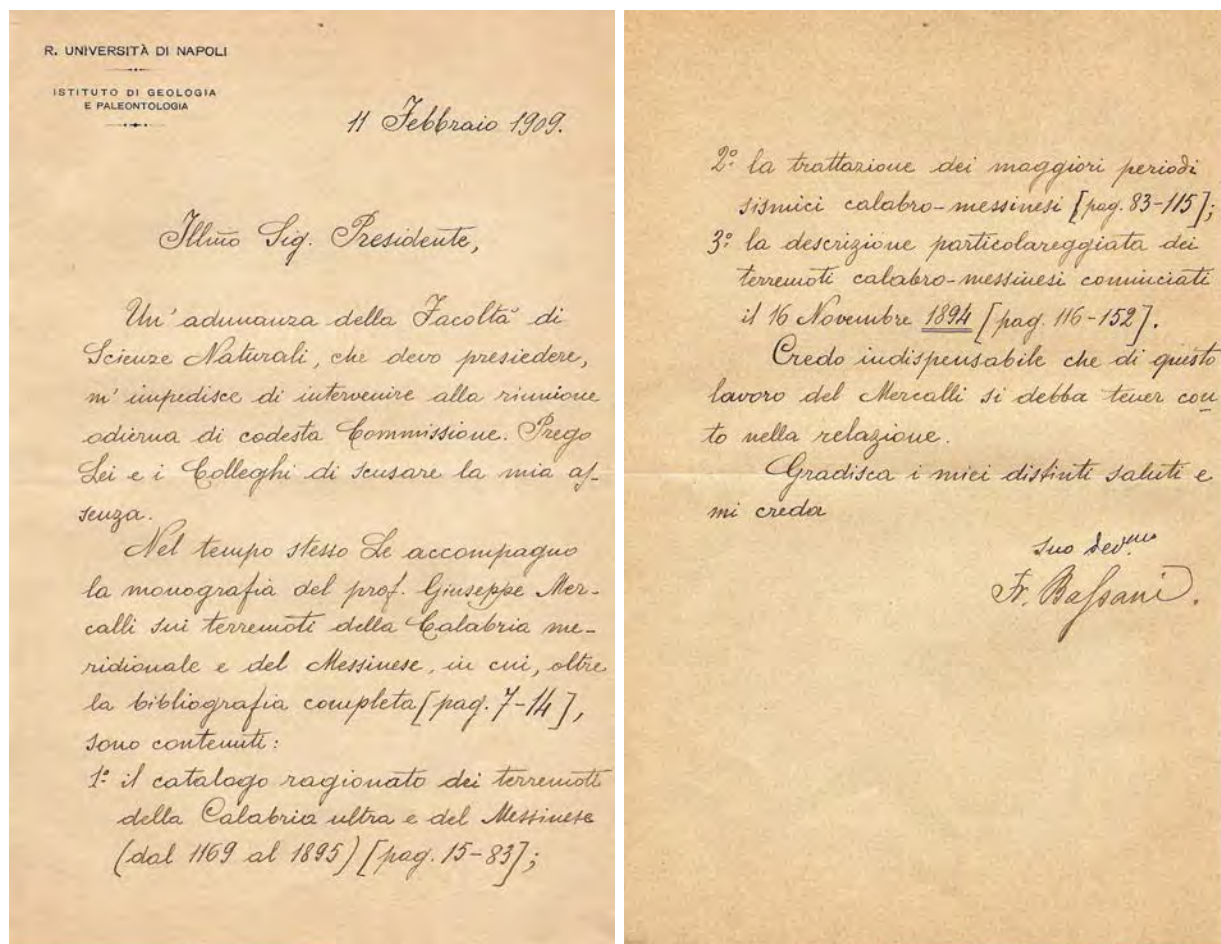 R. UNIVERSITÀ DI NAPOLI
ISTITUTO DI GEOLOGIA
E PALEONTOLOGIA
11 Febbraio 1909.
Illm̃o Sig. Presidente,
Un' adunanza della Facoltà di
Scienze Naturali, che devo presiedere,
m' impedisce di intervenire alla riunione
odierna di codesta Commissione. Prego
Lei e i Colleghi di scusare la mia as-
senza.
Nel tempo stesso Le accompagno
la monografia del prof. Giuseppe Mer-
calli sui terremoti della Calabria me-
ridionale e del Messinese, in cui, oltre
la bibliografia completa [pag. 7-14],
sono contenuti:
1º il catalogo ragionato dei terremoti
della Calabria ultra e del Messinese
(dal 1169 al 1895) [pag. 15-83];
2º la trattazione dei maggiori periodi
sismici calabro-messinesi [pag. 83-115];
3º la descrizione particolareggiata dei
terremoti calabro-messinesi cominciati
il 16 Novembre 1894 [pag. 116-152].
Credo indispensabile che di questo
lavoro del Mercalli si debba tener con
to nella relazione.
Gradisca i miei distinti saluti e
mi creda
suo dev.mo
Fr. Bassani.